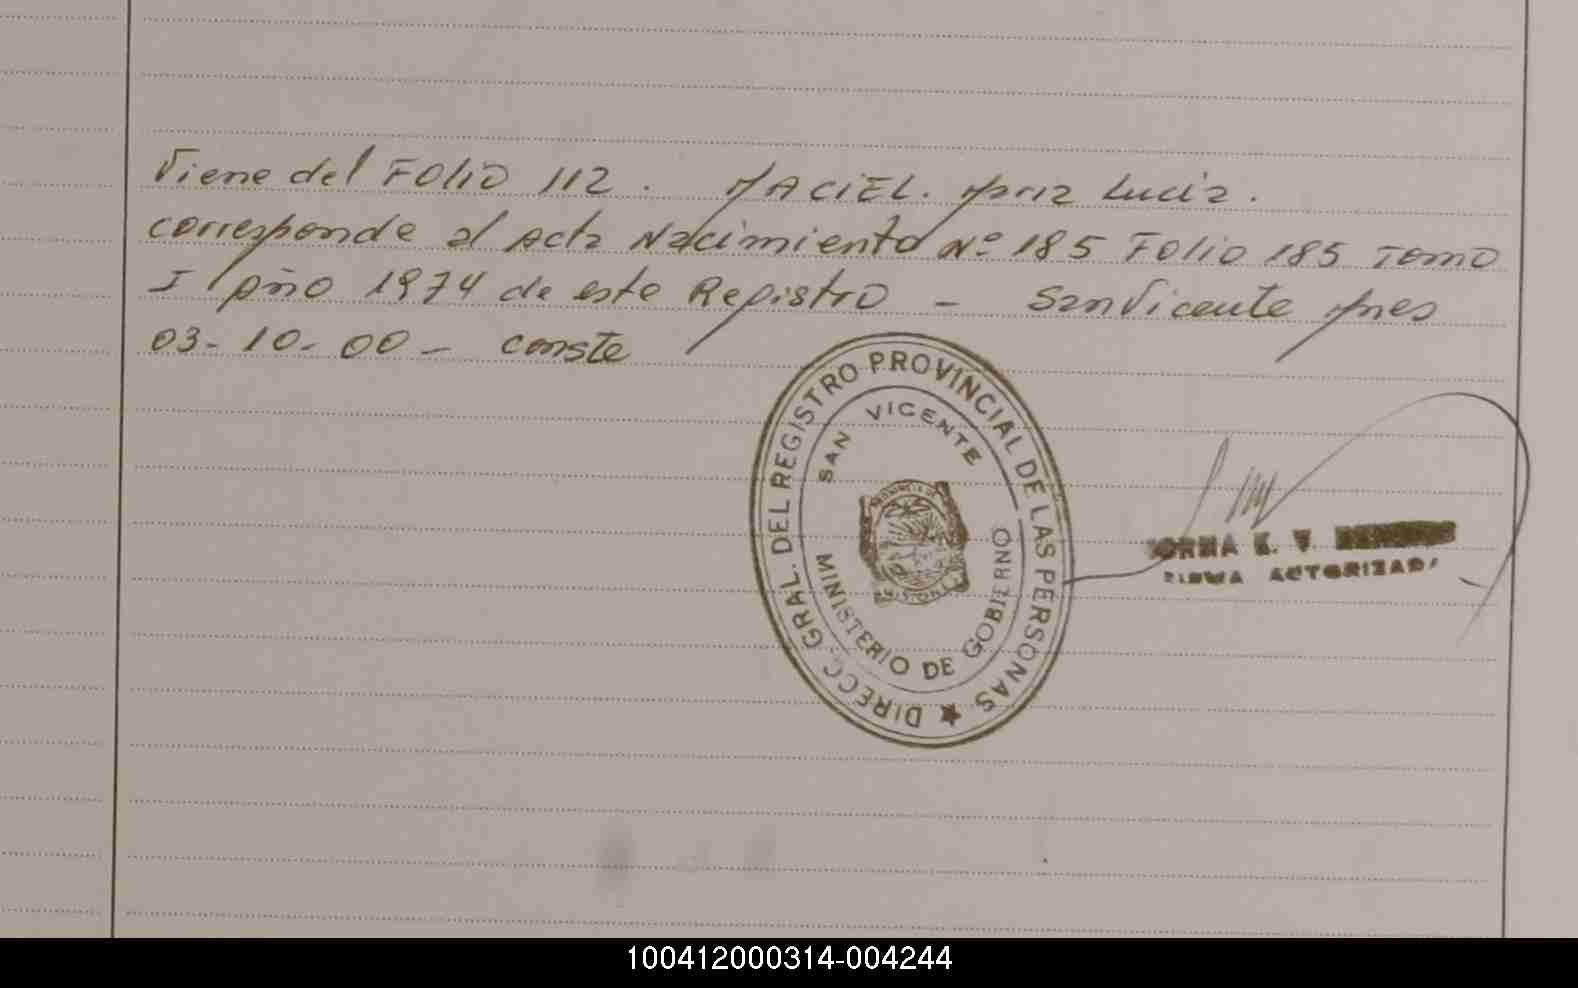 Viene del Folio 112. MACIEL. Maria Lucia.
corresponde al Acta Nacimiento Nº 185 Folio 185 Tomo
I Año 1974 de este Registro - San Vicente Mnes
03-10-00- conste
DIRECC. GRAL. DEL REGISTRO PROVINCIAL DE LAS PERSONAS ★
SAN VICENTE
MINISTERIO DE GOBIERNO
K. V.
FIRMA AUTORIZADA
100412000314-004244